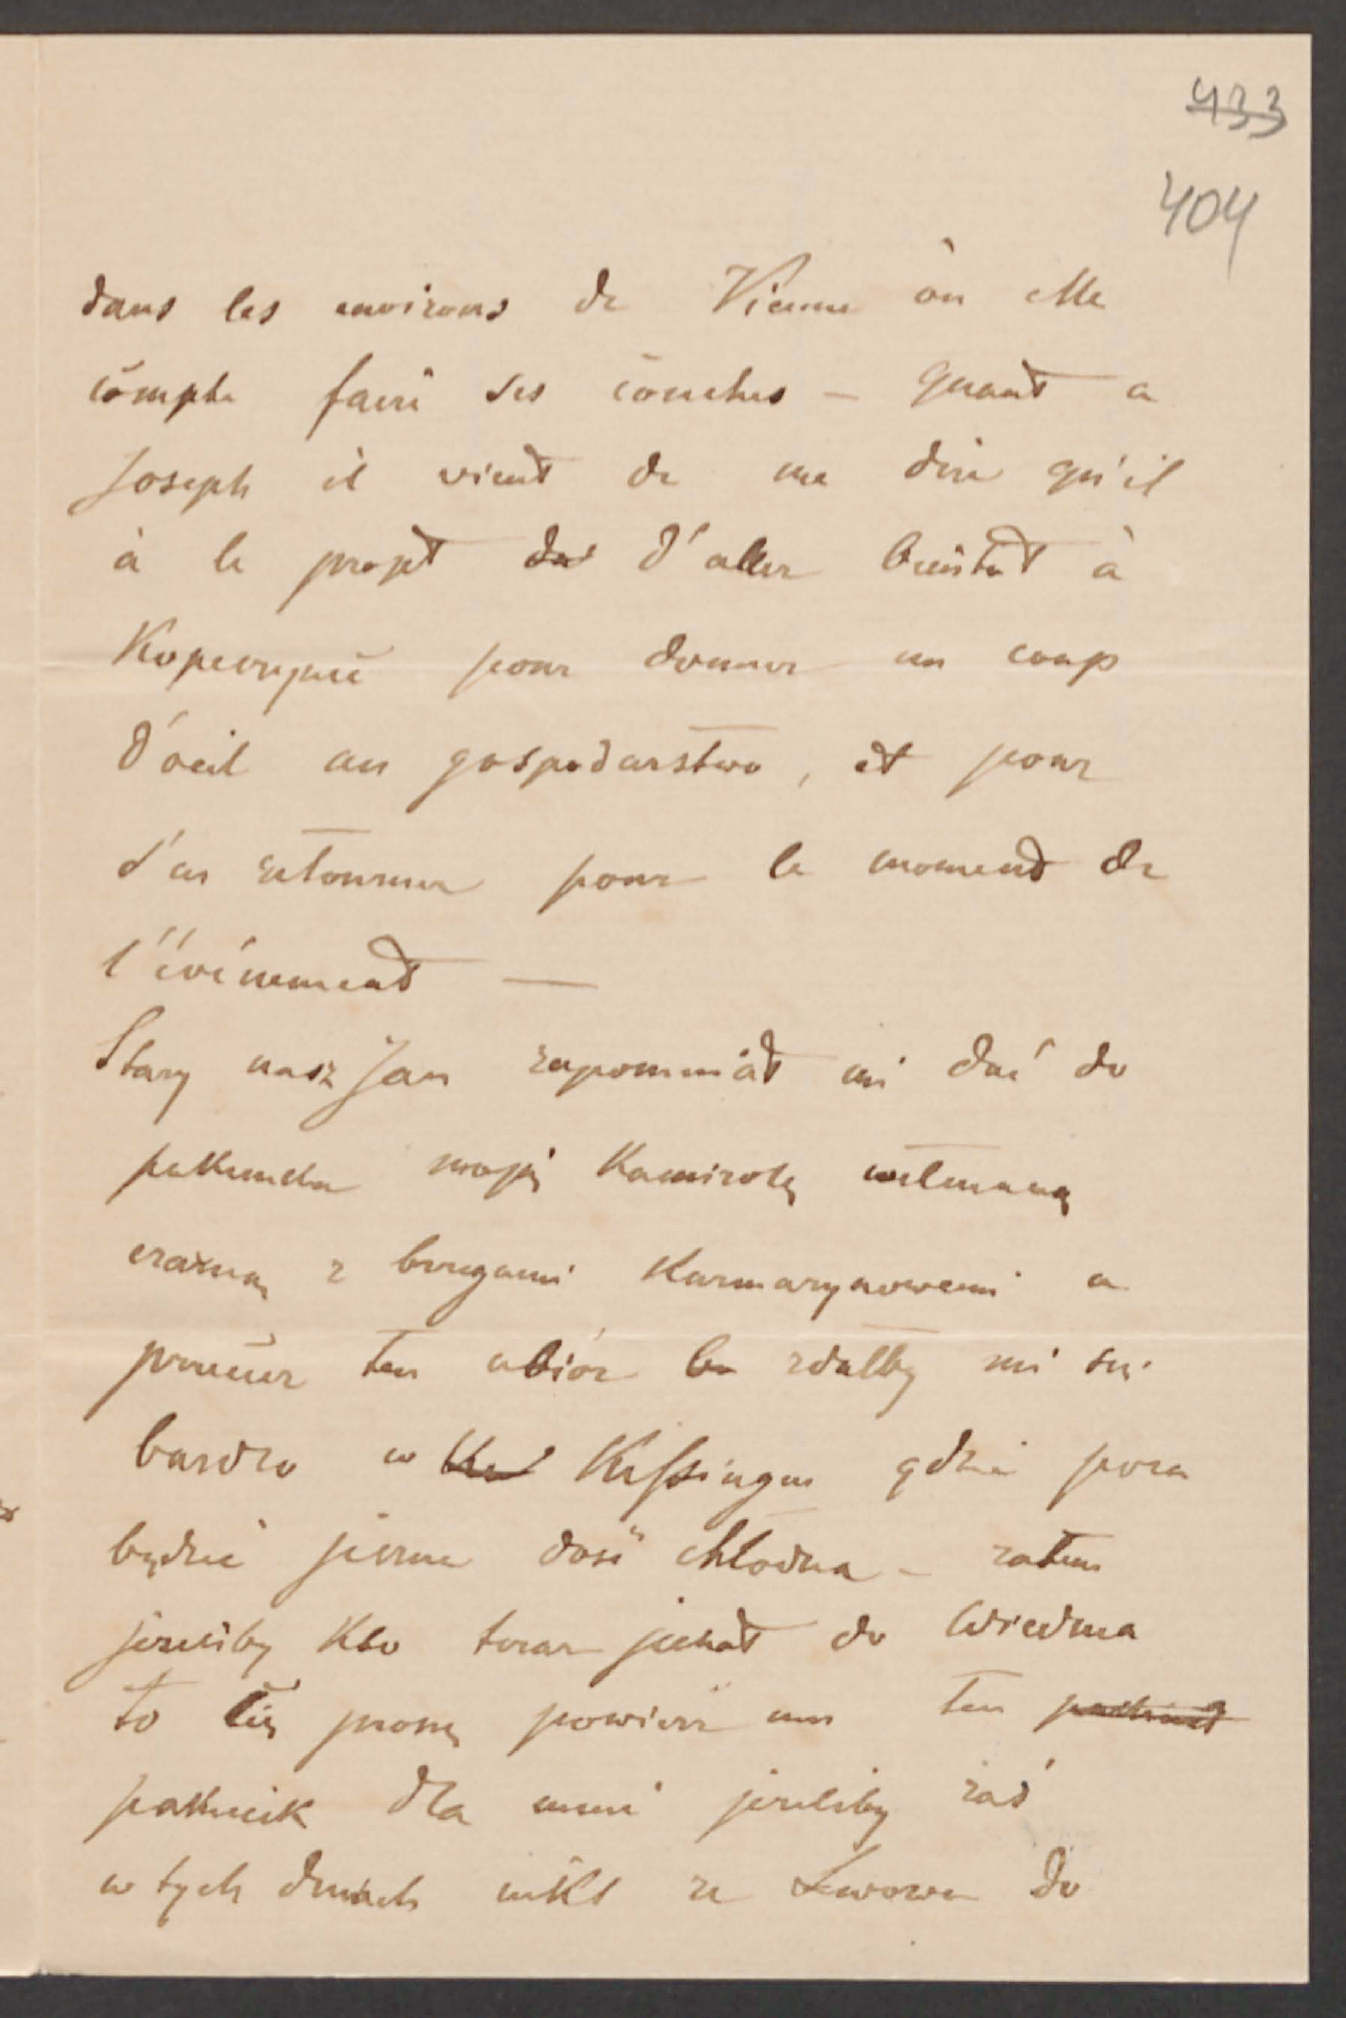 433
404
dans les environs de Vienne où elle
compte faire ses couches – quant a
Joseph il vient de me dire qu'il
à le projet d'aller bientôt à
Kopeczyńce pour donner un coup
d'oeil au gospodarstwo, et pour
s'en retourner pour le moment de
l'événement —
Stary nasz Jan zapomniał mi dać do
pakunku moję kamizolę wełnianą
czarną z brzegami karmazynowemi a
przecież ten ubiór zdałby mi się
bardzo w Kissingen gdzie pora
będzie jeszcze dość chłodna – zatem
jeżeliby kto teraz jechał do Wiednia
to Cię proszę powierz mu ten
pakiecik dla mnie jeżeliby zaś
w tych dniach nikt ze Lwowa do